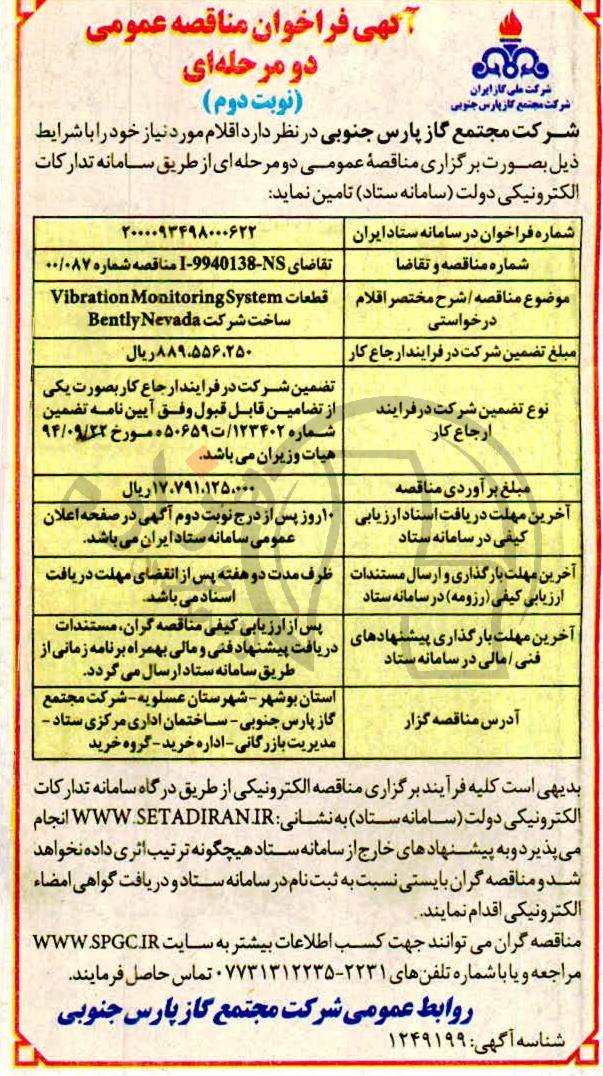 آگهی فراخوان مناقصه عمومی
دو مرحله‌ای
(نوبت دوم)
شرکت ملی گاز ایران
شرکت مجتمع گاز پارس جنوبی
شرکت مجتمع گاز پارس جنوبی در نظر دارد اقلام مورد نیاز خود را با شرایط
ذیل بصورت برگزاری مناقصهٔ عمومی دو مرحله ای از طریق سامانه تدارکات
الکترونیکی دولت (سامانه ستاد) تامین نماید:
شماره فراخوان در سامانه ستاد ایران ۲۰۰۰۰۹۳۴۹۸۰۰۰۶۲۲
شماره مناقصه و تقاضا تقاضای I-9940138-NS مناقصه شماره ۰۰/۰۸۷
موضوع مناقصه/شرح مختصر اقلام قطعات Vibration Monitoring System
درخواستی ساخت شرکت Bently Nevada
مبلغ تضمین شرکت در فرایند ارجاع کار ۸۸۹،۵۵۶،۲۵۰ ریال
نوع تضمین شرکت در فرایند
ارجاع کار
تضمین شرکت در فرایند ارجاع کار بصورت یکی
از تضامین قابل قبول وفق آیین نامه تضمین
شماره ۱۲۳۴۰۲/ت۵۰۶۵۹ه مورخ ۹۴/۰۹/۲۲
هیات وزیران می باشد.
مبلغ برآوردی مناقصه ۱۷،۷۹۱،۱۲۵،۰۰۰ ریال
آخرین مهلت دریافت اسناد ارزیابی
کیفی در سامانه ستاد
۱۰ روز پس از درج نوبت دوم آگهی در صفحه اعلان
عمومی سامانه ستاد ایران می باشد.
آخرین مهلت بارگذاری و ارسال مستندات
ارزیابی کیفی (رزومه) در سامانه ستاد
ظرف مدت دو هفته پس از انقضای مهلت دریافت
اسناد می باشد.
آخرین مهلت بارگذاری پیشنهادهای
فنی/مالی در سامانه ستاد
پس از ارزیابی کیفی مناقصه گران، مستندات
دریافت پیشنهاد فنی و مالی بهمراه برنامه زمانی از
طریق سامانه ستاد ارسال می گردد.
آدرس مناقصه گزار
استان بوشهر - شهرستان عسلویه - شرکت مجتمع
گاز پارس جنوبی - ساختمان اداری مرکزی ستاد -
مدیریت بازرگانی - اداره خرید - گروه خرید
بدیهی است کلیه فرآیند برگزاری مناقصه الکترونیکی از طریق درگاه سامانه تدارکات
الکترونیکی دولت (سامانه ستاد) به نشانی: WWW.SETADIRAN.IR انجام
می پذیرد و به پیشنهادهای خارج از سامانه ستاد هیچگونه ترتیب اثری داده نخواهد
شد و مناقصه گران بایستی نسبت به ثبت نام در سامانه ستاد و دریافت گواهی امضاء
الکترونیکی اقدام نمایند.
مناقصه گران می توانند جهت کسب اطلاعات بیشتر به سایت WWW.SPGC.IR
مراجعه و یا با شماره تلفن های ۲۲۳۱-۰۷۷۳۱۳۱۲۲۳۵ تماس حاصل فرمایند.
روابط عمومی شرکت مجتمع گاز پارس جنوبی
شناسه آگهی: ۱۲۴۹۱۹۹